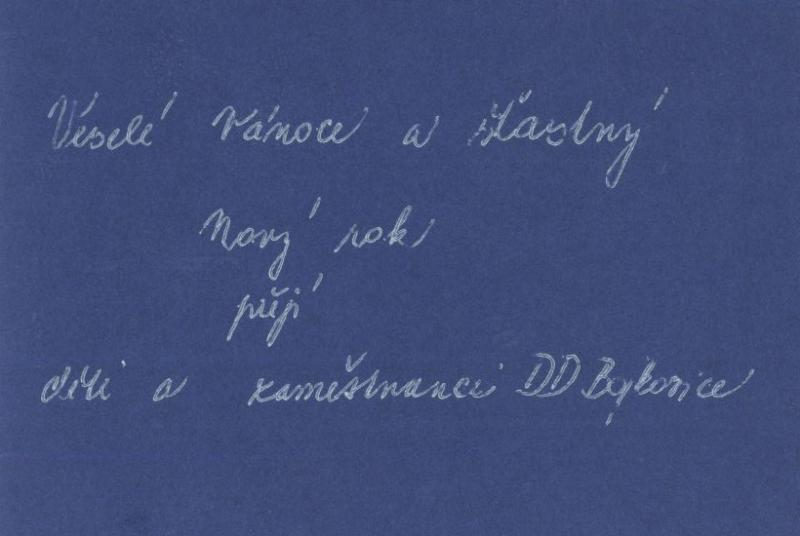 Veselé Vánoce a šťastný
Nový rok
přejí
děti a zaměstnanci DD Bojkovice